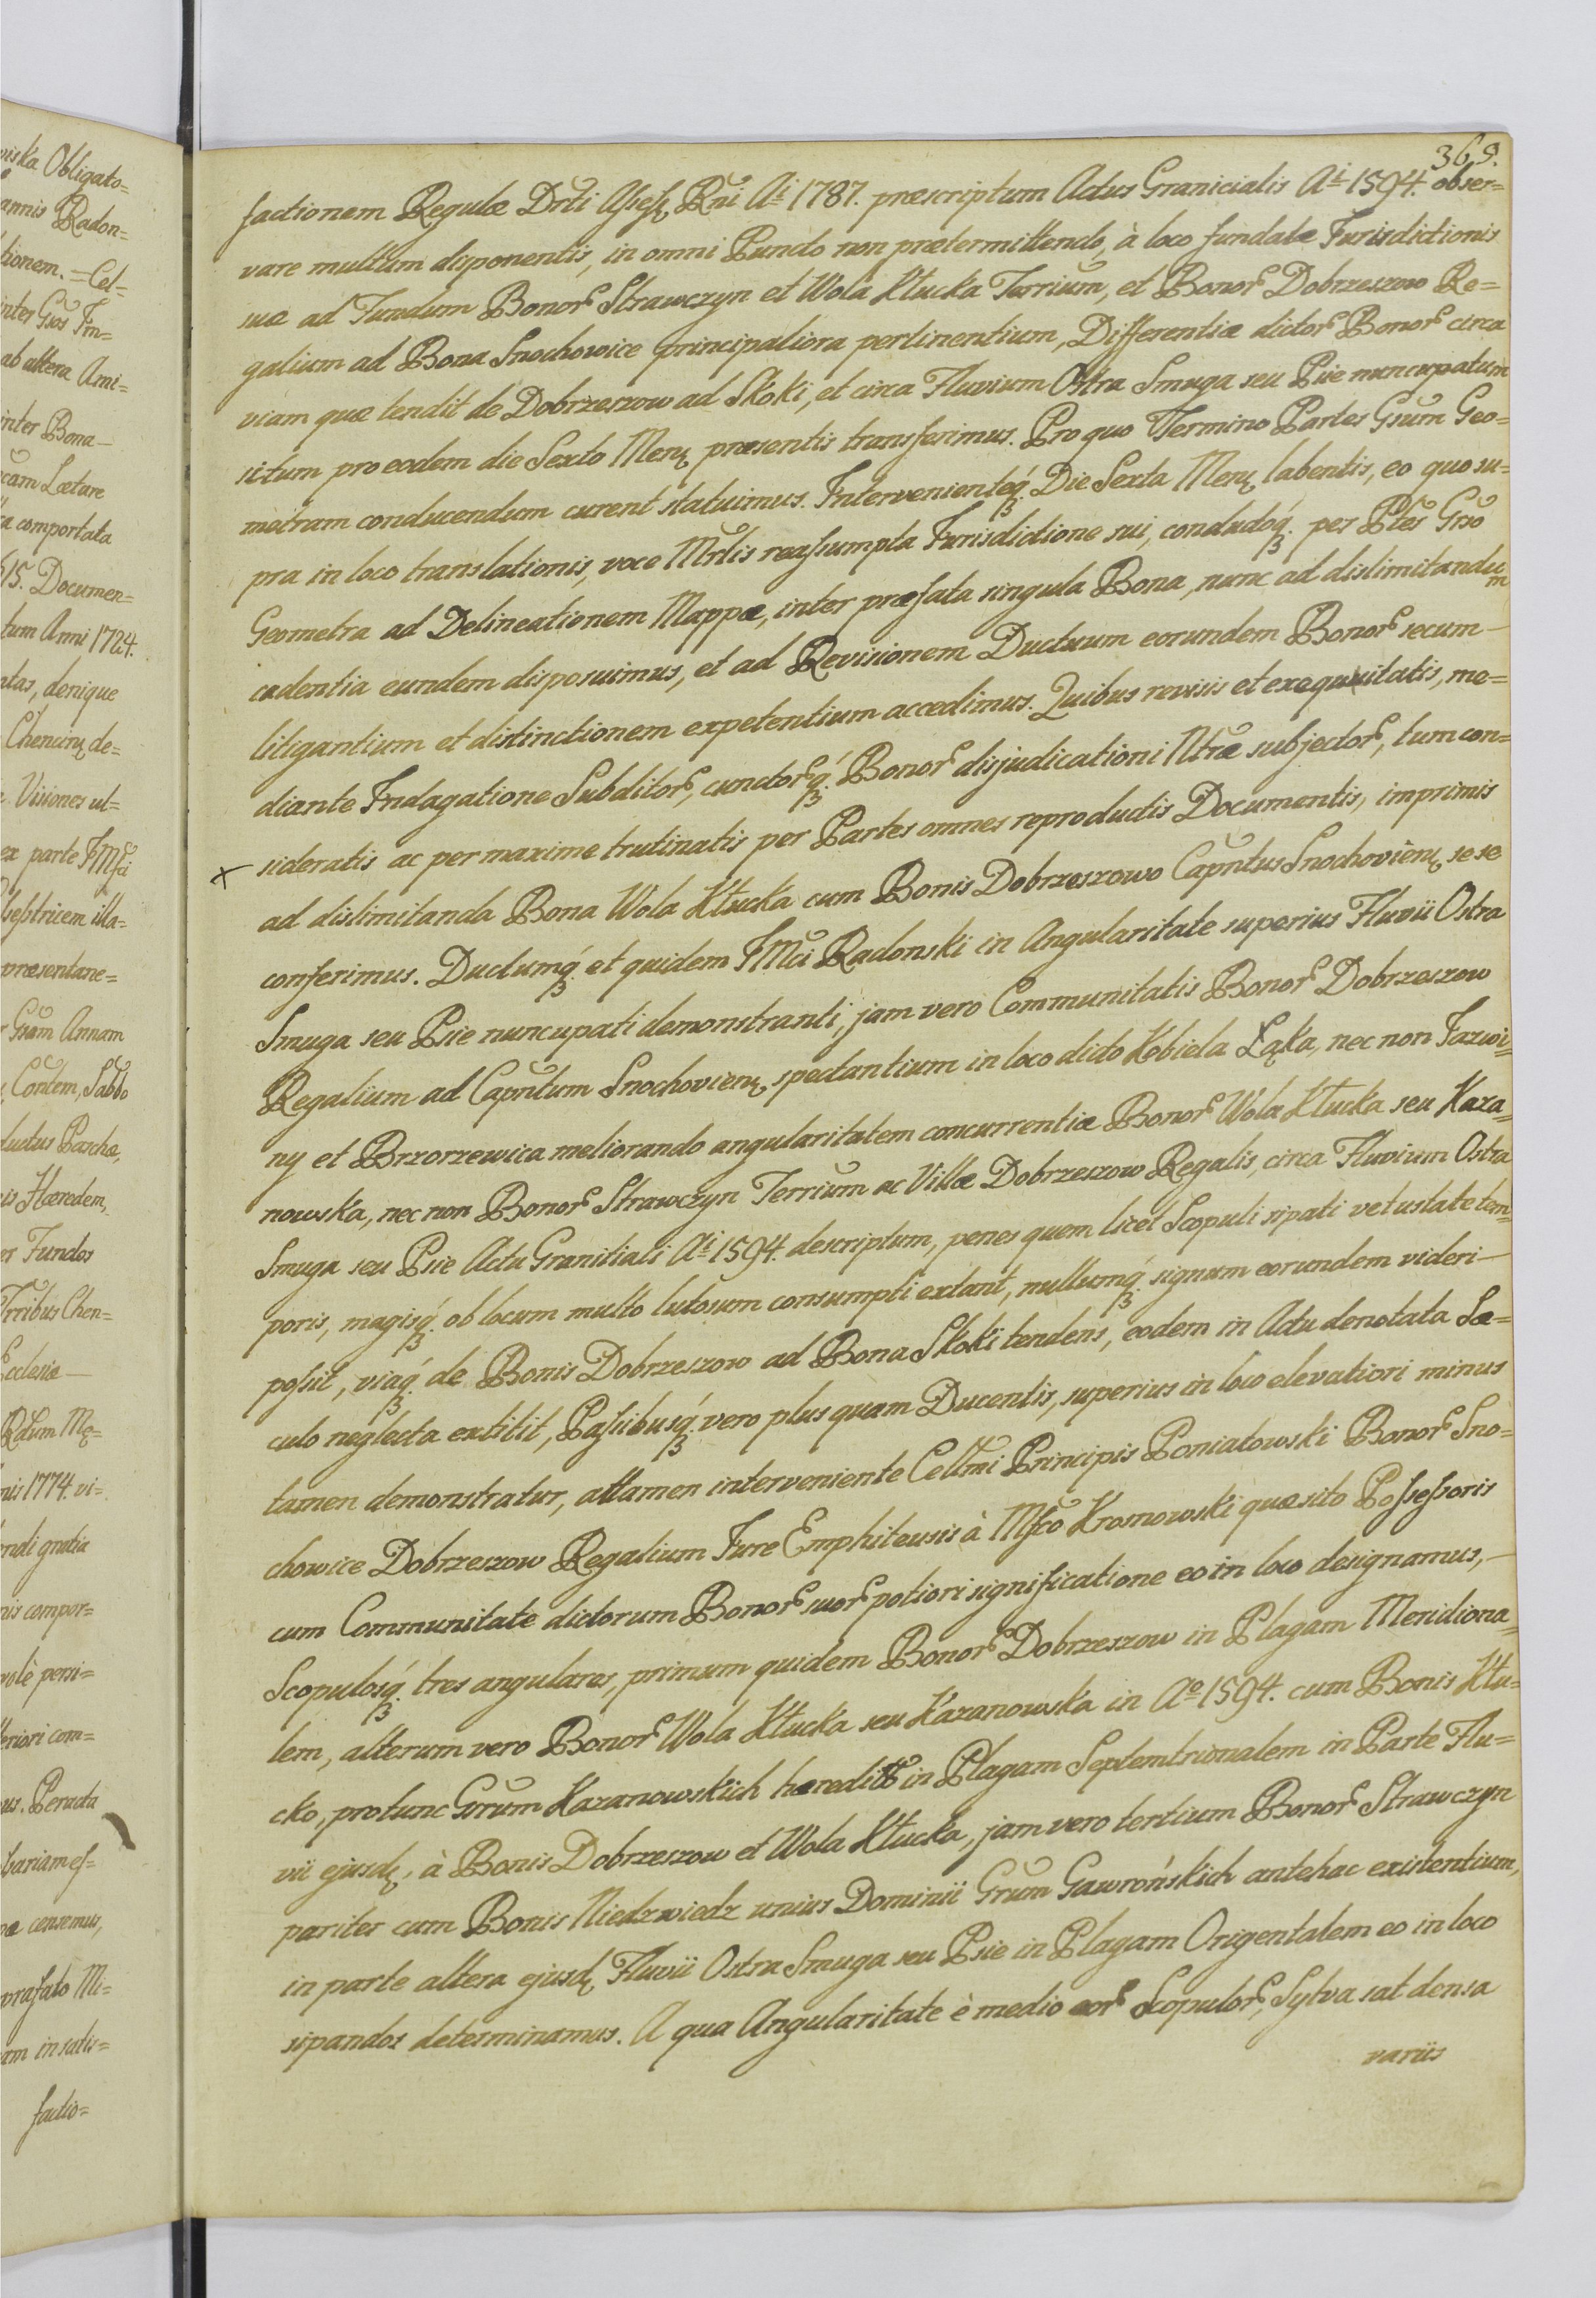 viska Obligato=
annis Radon=
tionem. = Cel=
inter Gsos Im=
ab altera Ami=
inter Bona —
cam Lætare
ta comportata
615. Documen=
tum Anni 1724.
ntas, denique
Chencinę de=
Visiones ul=
ex parte JMci
sehstricem illa=
præsentane=
Gsam Annam
Contem, Sabbo
ductus Pascha,
is Hæredem,
Fundos
Trribus Chen=
Ecclesiæ —
Rdum Mę=
nis 1774. vi=
endi gratia
nis compor=
volè persi=
teriori com=
us. Peracta
bariam ef=
væ censemus,
præfato Mi=
am in satis=
factio=
369.
factionem Regulæ Drti Aſseſs Rni Ai 1787. præscriptum Actus Granicialis Ai 1594. obser=
vare multum disponentis, in omni Puncto non prætermittendo, à loco fundatæ Jurisdictionis
suæ ad Fundum Bonor Strawczyn et Wola Kłucka Terrium, et Bonor Dobrzeszow Re=
galium ad Bona Snochowice principaliora pertinentium, Differentiæ dictor Bonor circa
viam quæ tendit de Dobrzeszow ad Skoki, et circa Fluvium Ostra Smuga seu Psie nuncupatum
situm pro eodem die Sexto Menę præsentis transferimus. Pro quo Termino Partes Gsum Geo=
metram conducendum curent statuimus. Intervenienteq. Die Sexta Menę labentis, eo quo su=
pra in loco translationis, voce Mrlis reaſsumpta Jurisdictione sui, conductoq. per Ptes Grso
Geometra ad Delineationem Mappæ, inter præfata singula Bona, nunc ad dislimitandum
cadentia eundem disposuimus, et ad Revisionem Ductuum eorundem Bonor secum —
litigantium et distinctionem expetentium accedimus. Quibus revisis et exequuitatis, me=
diante Indagatione Subditor, cunctorq. Bonor disjudicationi Ntræ subjector, tum con=
sideratis ac per maxime trutinatis per Partes omnes reproductis Documentis, imprimis
× ad dislimitanda Bona Wola Kłucka cum Bonis Dobrzeszowo Capntus Snochovienę sese
conferimus. Ductumq. et quidem JMci Radonski in Angularitate superius Fluvii Ostra
Smuga seu Psie nuncupati demonstranti, jam vero Communitatis Bonor Dobrzeszow
Regalium ad Capntum Snochovienę spectantium in loco dicto Kobiela Łąka, nec non Jazwi=
ny et Brzorzewica meliorando angularitatem concurrentiæ Bonor Wola Kłucka seu Kaza=
nowska, nec non Bonor Strawczyn Terrium ac Villæ Dobrzeszow Regalis, circa Fluvium Ostra
Smuga seu Psie Actu Granitiali Ai 1594. descriptum, penes quem licet Scopuli sipati vetustate tem=
poris, magisq. ob locum multo lutosum consumpti extant, nullumq. signum eorundem videri —
poſsit, viaq. de Bonis Dobrzeszow ad Bona Skoki tendens, eodem in Actu denotata Sæ=
culo neglecta extitit, Paſsibusq. vero plus quam Ducentis, superius in loco elevatiori minus
tamen demonstratur, attamen interveniente Cellmi Principis Poniatowski Bonor Sno=
chowice Dobrzeszow Regalium Jure Emphiteusis à Mfco Kromowski quæsito Poſseſsoris
cum Communitate dictorum Bonor suor potiori significatione eo in loco designamus, —
Scopulosq. tres angulares, primum quidem Bonor Dobrzeszow in Plagam Meridiona=
lem, alterum vero Bonor Wola Kłucka seu Kazanowska in Ao 1594. cum Bonis Kłu=
cko, protunc Grum Kazanowskich hæreditr in Plagam Septemtrionalem in Parte Flu=
vii ejusdę, à Bonis Dobrzeszow et Wola Kłucka, jam vero tertium Bonor Strawczyn
pariter cum Bonis Niedzwiedz unius Dominii Grum Gawrońskich antehac existentium,
in parte altera ejusdę Fluvii Ostra Smuga seu Psie in Plagam Origentalem eo in loco
sipandos determinamus. A qua Angularitate è medio eor Scopulor, Sylva sat densa
variis